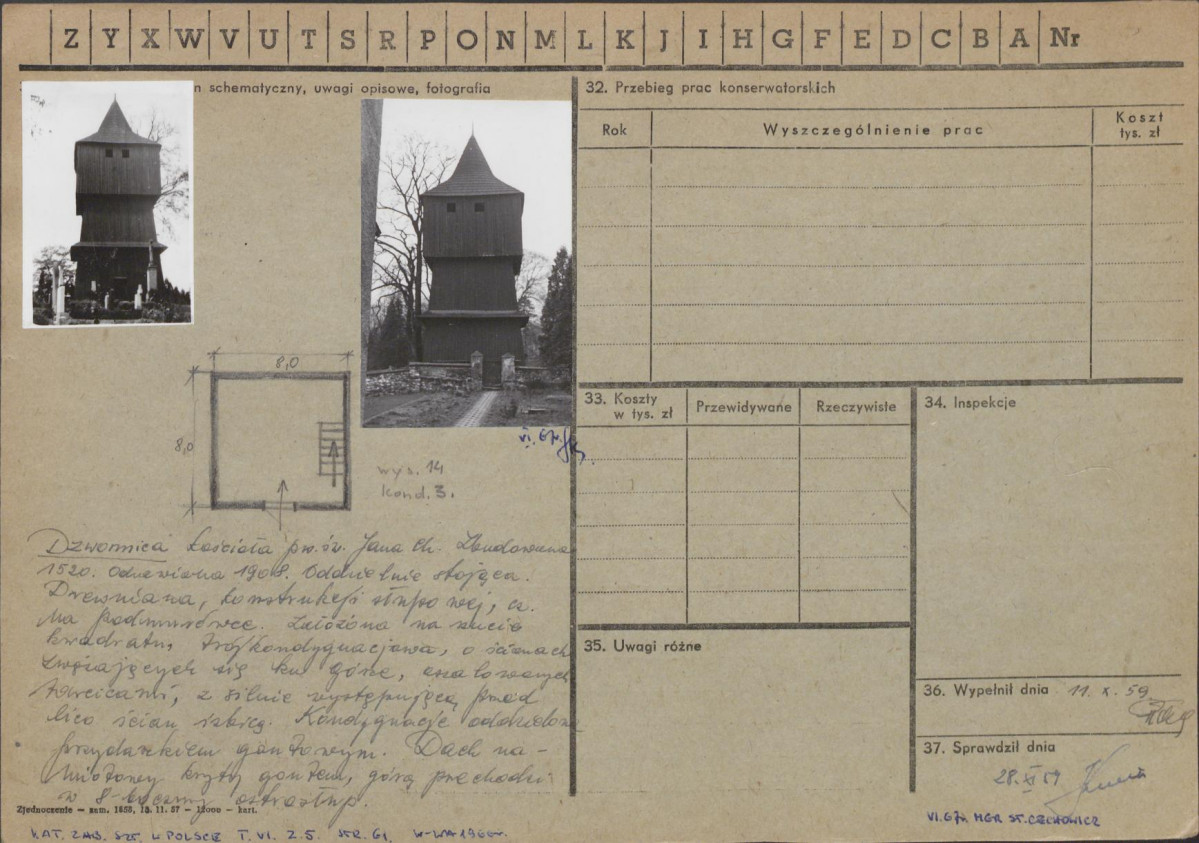 Z Y X W V U T S R P O N M L K J I H G F E D C B A Nr
n schematyczny, uwagi opisowe, fotografia
VI. 67r.
8,0
8,0
wys. 14
kond. 3.
Dzwonnica kościoła pw. św. Jana Ch. Zbudowana
1520. Odnowiona 1908. Oddzielnie stojąca.
Drewniana, konstrukcji słupowej, cz.
na podmurówce. Założona na rzucie
kwadratu, trójkondygnacjowa, o ścianach
zwężających się ku górze, oszalowanych
tarcicami, z silnie występującą przed
lico ścian izbicą. Kondygnacje oddzielone
przydaszkiem gontowym. Dach na-
miotowy kryty gontem, górą przechodzi
w 8-boczny ostrosłup.
Zjednoczenie — zam. 1855, 13. 11. 57 — 12000 — kart.
KAT. ZAB. SZT. W POLSCE T. VI. Z. 5. STR. 61. W-WA 1960r.
32. Przebieg prac konserwatorskich
Rok
Wyszczególnienie prac
Koszt
tys. zł
33. Koszty
w tys. zł
Przewidywane
Rzeczywiste
34. Inspekcje
35. Uwagi różne
36. Wypełnił dnia 11. X. 59.
37. Sprawdził dnia
28. XI 59
VI. 67r. MGR ST. CZECHOWICZ